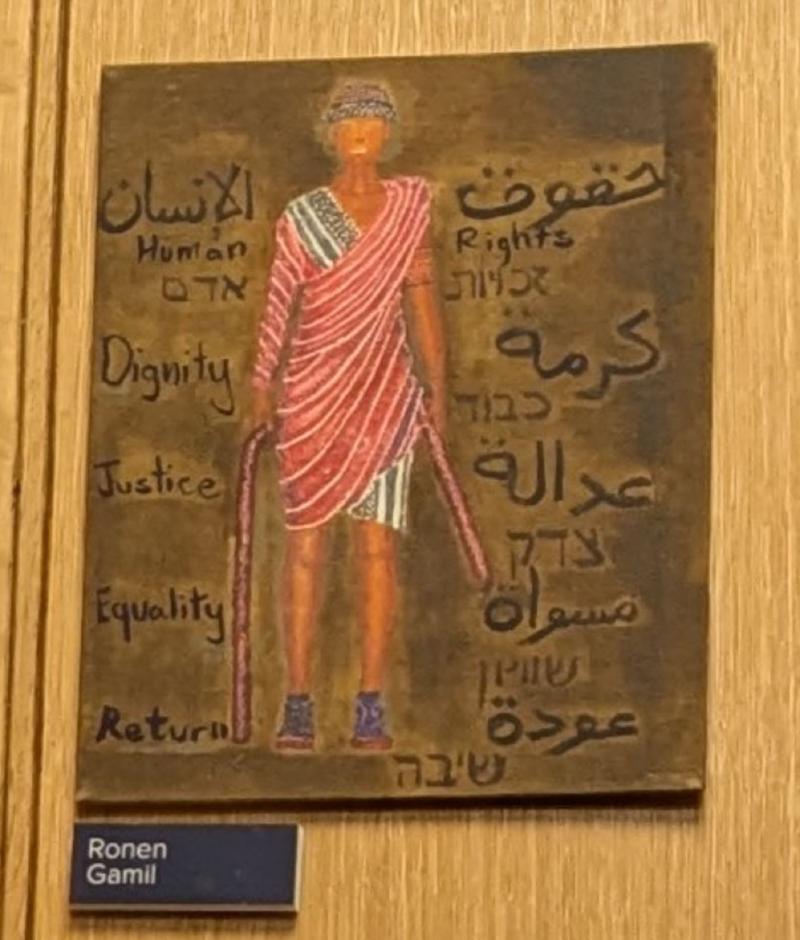 حقوق الإنسان
Human Rights
אדם זכויות
Dignity كرمة
כבוד
Justice عدالة
צדק
Equality مسواة
שוויון
Return عودة
שיבה
Ronen
Gamil